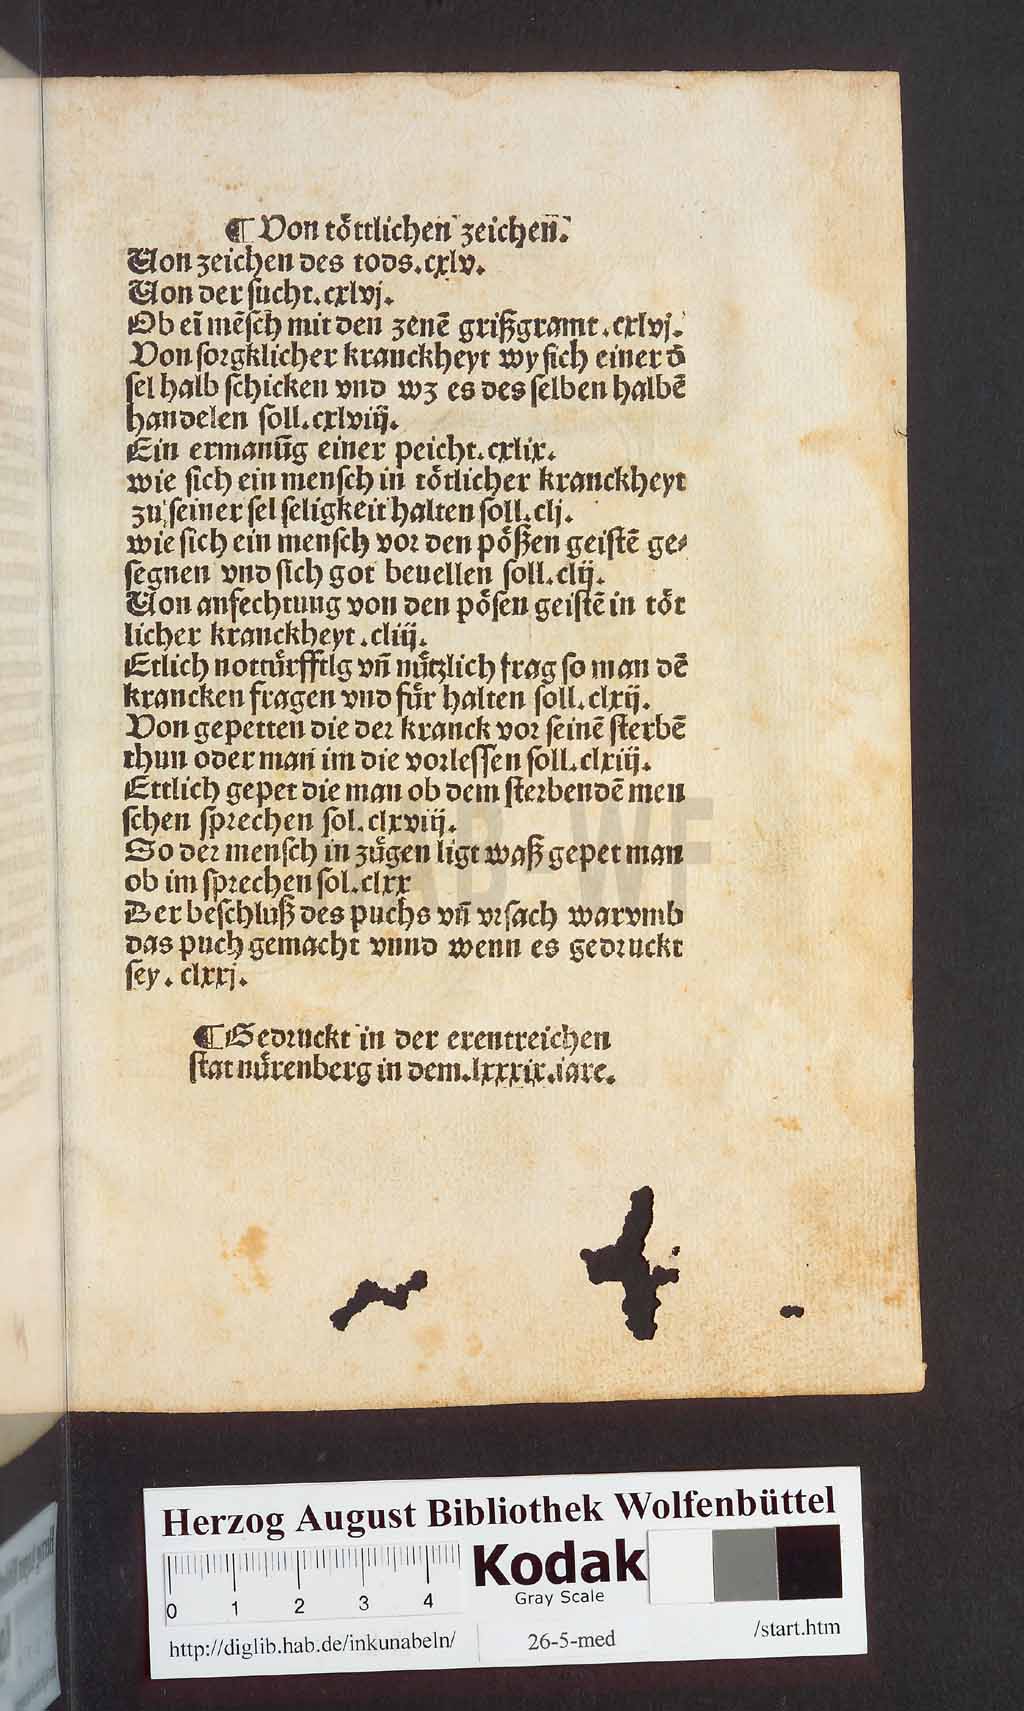 ¶ Von töttlichen zeichen.
Von zeichen des tods.cxlv.
Von der sucht.cxlvj.
Ob eī mēsch mit den zenē grißgramt.cxlvj.
Von sorgklicher kranckheyt wy sich einer d̄
sel halb schicken vnd wz es des selben halbē
handelen soll.cxlviij.
Ein ermanūg einer peicht.cxlix.
wie sich ein mensch in tötlicher kranckheyt
zu seiner sel seligkeit halten soll.clj.
wie sich ein mensch vor den pößen geistē ge⸗
segnen vnd sich got beuellen soll.clij.
Von anfechtung von den pösen geistē in töt
licher kranckheyt.cliij.
Etlich nottürfftlg vn̄ nützlich frag so man dē
krancken fragen vnd für halten soll.clxij.
Von gepetten die der kranck vor seinē sterbē
thun oder man im die vorlessen soll.clxiij.
Ettlich gepet die man ob dem sterbendē men
schen sprechen sol.clxviij.
So der mensch in zügen ligt waß gepet man
ob im sprechen sol.clxx
Der beschluß des puchs vn̄ vrsach warvmb
das puch gemacht vnnd wenn es gedruckt
sey. clxxj.
¶ Gedruckt in der erentreichen
stat nürenberg in dem.lxxxix.iare.
HAB-WF
Herzog August Bibliothek Wolfenbüttel
0 1 2 3 4
Kodak
Gray Scale
http://diglib.hab.de/inkunabeln/ 26-5-med /start.htm